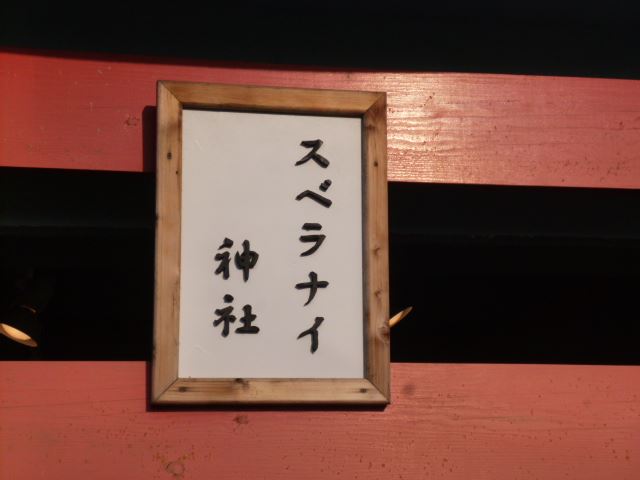 スベラナイ
神社